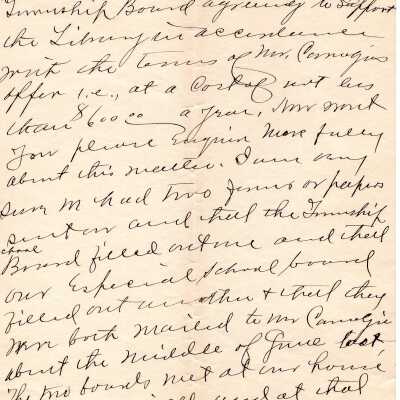 Township Board agreeing to support
the Library in accordance
with the terms of Mr. Carnegie
offer i.e., at a cost of not less
than $600.00 a year, Now wont
you please Enquire More fully
about this matter. I am very
sure we had two forms or papers
sent on and that the Township
school
Board filled out one and that
our Especial School board
filled out another & that they
were both mailed to Mr Carnegie
about the middle of June last
The two boards met at our house
and at that